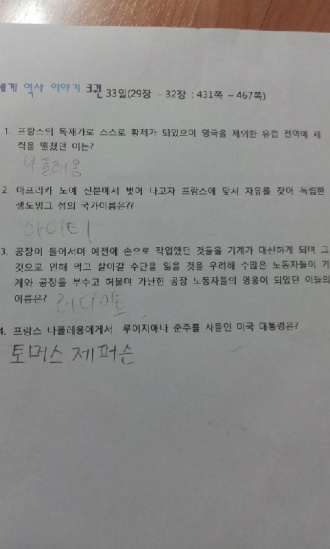 세계 역사 이야기 3권 33일(29장 - 32장 : 431쪽 ~ 467쪽)
1. 프랑스의 독재가로 스스로 황제가 되었으며 영국을 제외한 유럽 전역에 세
력을 떨쳤던 이는?
나폴레옹
2. 아프리카 노예 신분에서 벗어 나고자 프랑스에 맞서 자유를 찾아 독립한
생도밍그 섬의 국가이름은??
아이티
3. 공장이 들어서며 예전에 손으로 작업했던 것들을 기계가 대신하게 되며 그
것으로 인해 먹고 살아갈 수단을 잃을 것을 우려해 수많은 노동자들이 기
계와 공장을 부수고 허물며 가난한 공장 노동자들의 영웅이 되었던 이들의
이름은? 러다이트
4. 프랑스 나폴레옹에게서 루이지애나 준주를 사들인 미국 대통령은?
토머스 제퍼슨